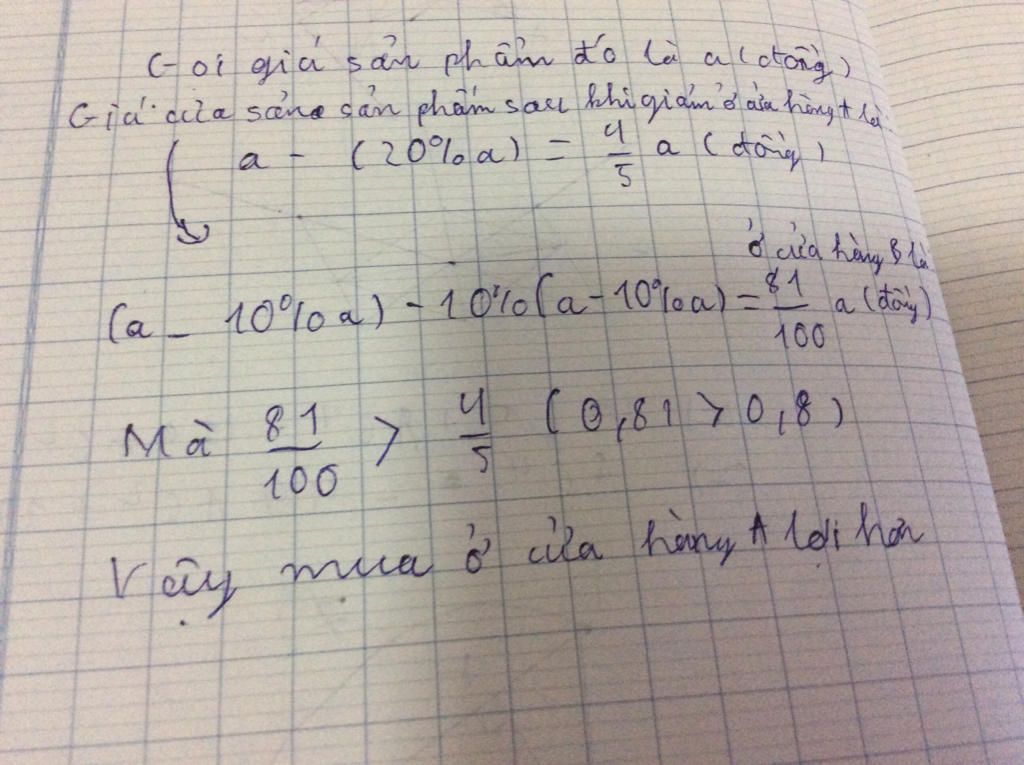 Gọi giá sản phẩm đó là a (đồng)
Giá của sản sản phẩm sau khi giảm ở cửa hàng A là:
a - (20% a) = 4/5 a (đồng)
ở cửa hàng B là
(a - 10% a) - 10% (a - 10% a) = 81/100 a (đồng)
Mà 81/100 > 4/5 (0,81 > 0,8)
Vậy mua ở cửa hàng A lợi hơn